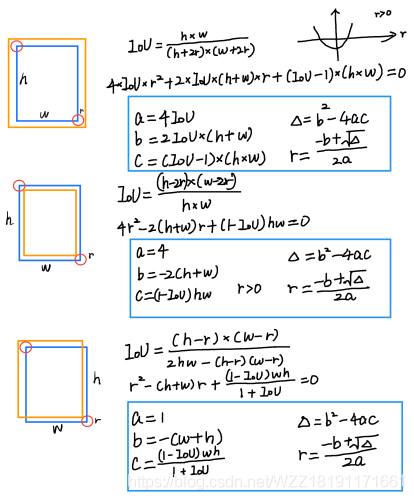 IoU = h×w / (h+2r)×(w+2r)
r>0
r
h
w
r
4*IoU*r²+2*IoU*(h+w)*r+(IoU-1)*(h*w)=0
a=4IoU
b=2IoU*(h+w)
c=(IoU-1)*(h*w)
Δ=b²-4ac
r=-b+√Δ / 2a
h
w
r
IoU=(h-2r)*(w-2r) / h*w
4r²-2(h+w)r+(1-IoU)hw=0
a=4
b=-2(h+w)
c=(1-IoU)hw
r>0
Δ=b²-4ac
r=-b+√Δ / 2a
h
w
r
IoU=(h-r)×(w-r) / 2hw-(h-r)(w-r)
r²-(h+w)r+(1-IoU)wh / 1+IoU=0
a=1
b=-(w+h)
c=(1-IoU)wh / 1+IoU
Δ=b²-4ac
r=-b+√Δ / 2a
https://blog.csdn.net/WZZ18191171661